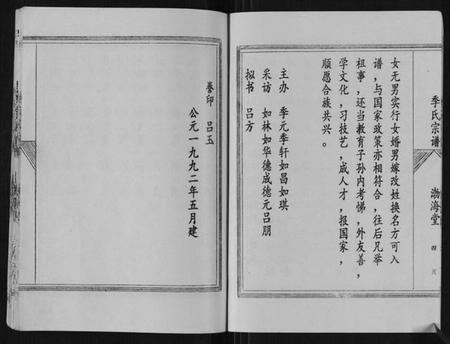 季氏宗谱
渤海堂
四
月
女无男实行女婚男嫁改姓换名方可入
谱，与国家政策亦相符合，往后凡举
祖事，还当教育子孙内考悌，外友善，
学文化，习技艺，成人才，报国家，
顺愿合族共兴。
主办 季元季轩如昌如琪
采访 如林如华德成德元吕朋
拟书 吕方
誊印 吕玉
公元一九九二年五月建